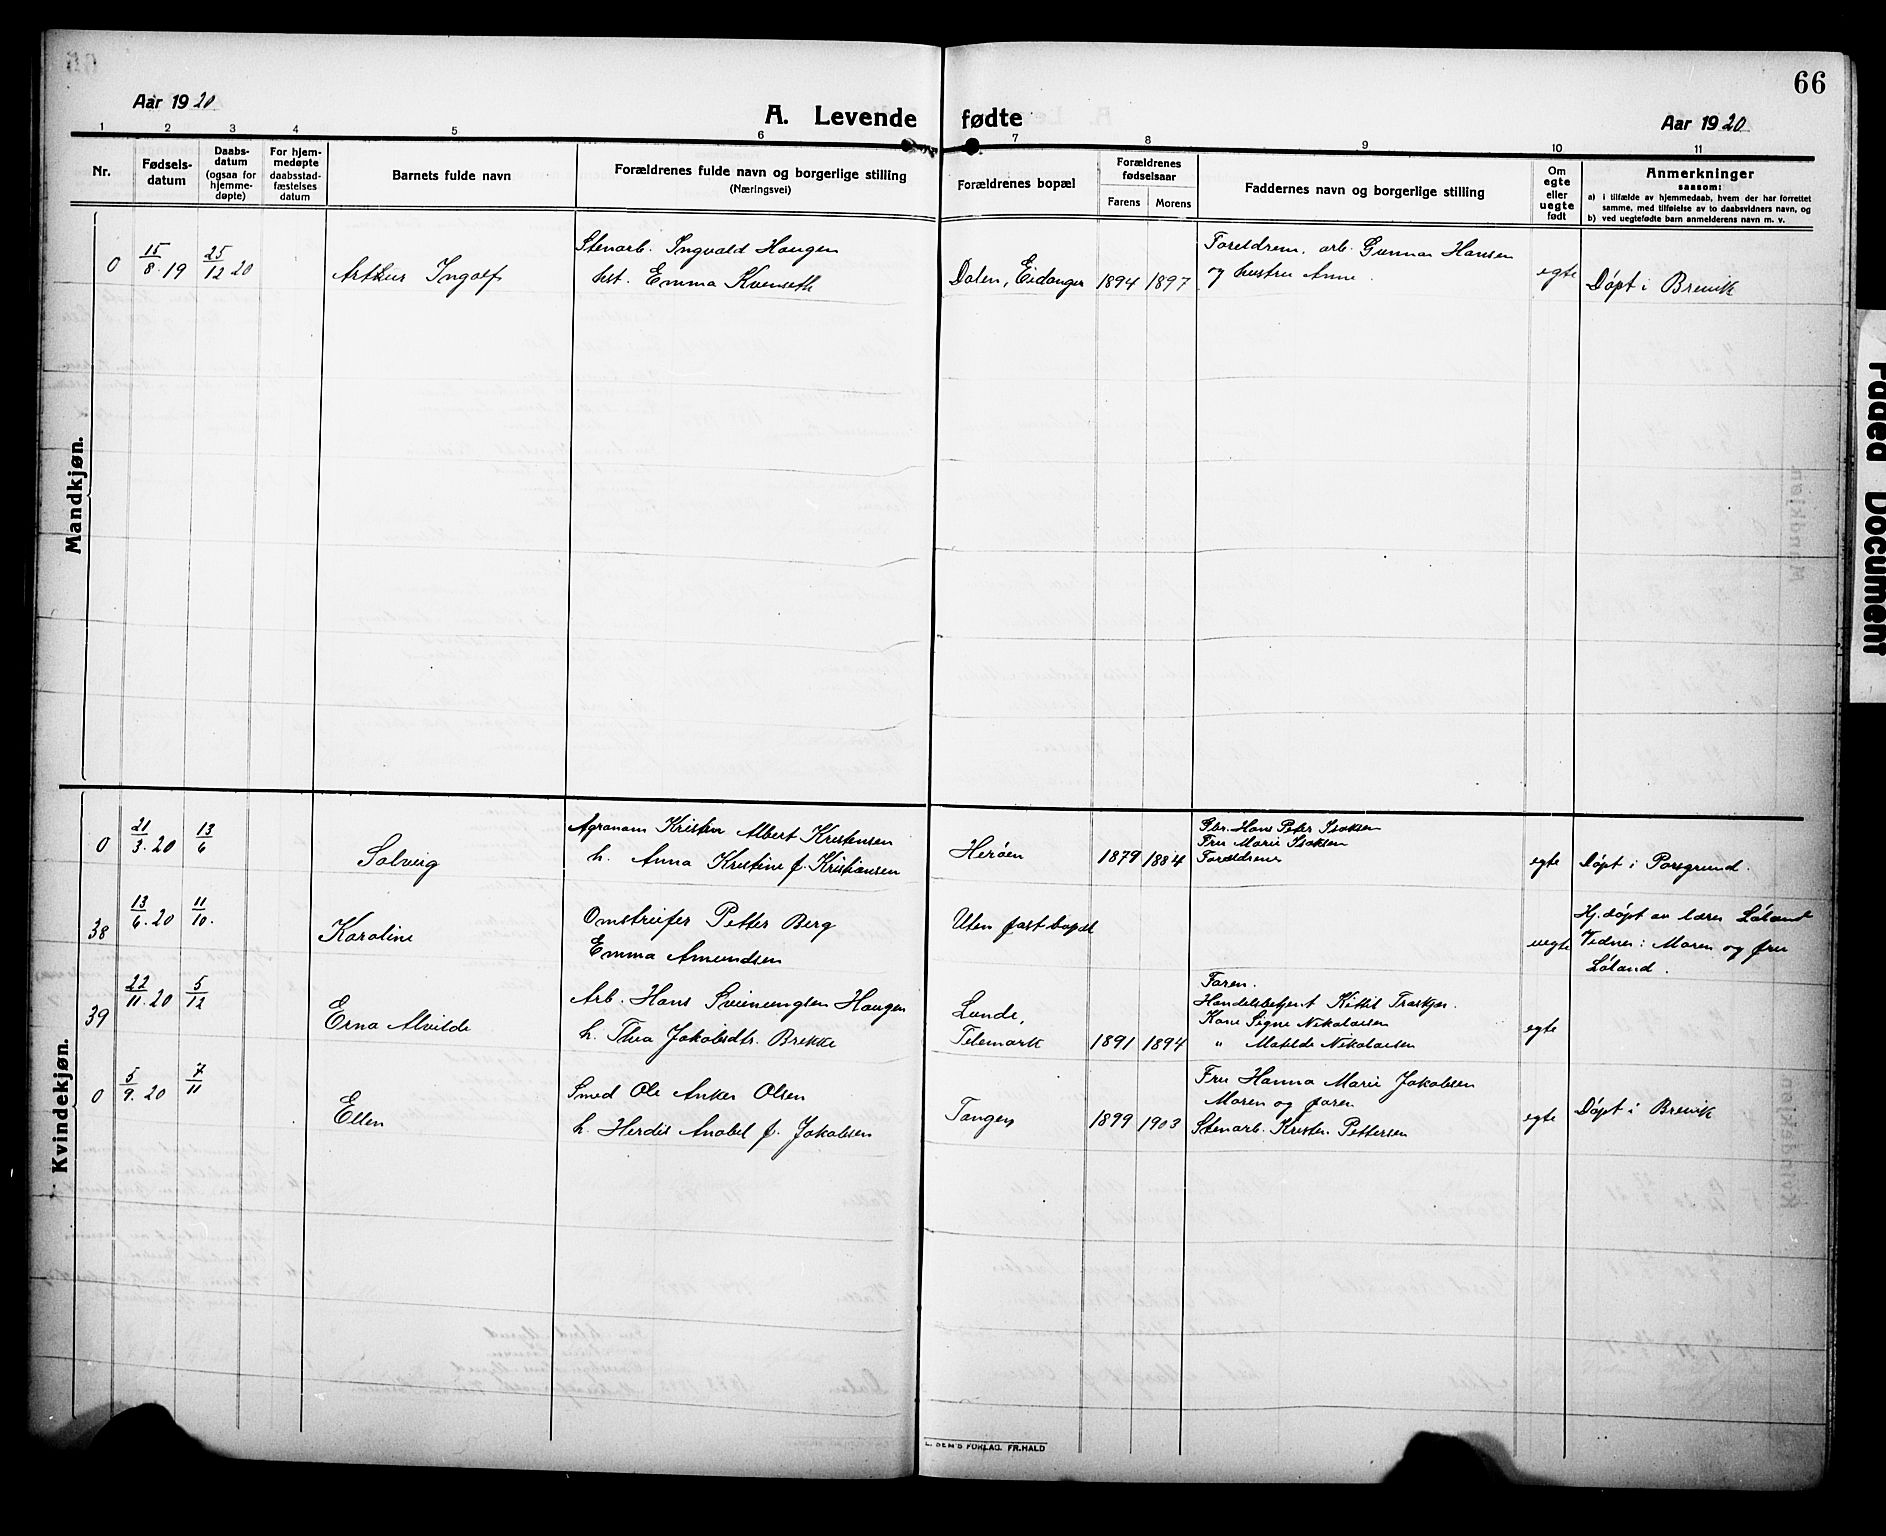 66
Aar 1920
A. Levende fødte
Aar 1920
1 2 3 4 5 6 7 8 9 10 11
Nr.
Fødsels-
datum
Daabs-
datum
(ogsaa for
hjemme-
døpte)
For hjem-
medøpte
daabsstad-
fæstelses
datum
Barnets fulde navn
Forældrenes fulde navn og borgerlige stilling
(Næringsvei)
Forældrenes bopæl
Forældrenes
fødselsaar
Farens Morens
Faddernes navn og borgerlige stilling
Om
egte
eller
uegte
født
Anmerkninger
saasom:
a) i tilfælde av hjemmedaab, hvem der har forrettet
samme, med tilføielse av to daabsvidners navn, og
b) ved uegtefødte barn anmelderens navn m. v.
Mandkjøn.
0 15/8.19 25/12 20 Arthur Ingolf
Stenarb. Ingvald Haugen
hst. Emma Kvenseth
Dalen, Eidanger 1894 1897
Foreldrene, arb. Gunnar Hansen
og hustru Anne.
egte Døpt i Brevik
Kvindekjøn.
0 21/3.20 13/6 Solveig
Agronom Kristen Albert Kristensen
h. Anna Kristine f. Kristiansen
Herøen 1879 1884
Gbr. Hans Peter Isaksen
Fru Marie Isaksen
Forældrene
egte Døpt i Porsgrund.
38 13/6.20 11/10. Karoline
Omstreifer Petter Berg
Emma Amundsen
Uten fast bopæl
uegte
Hj. døpt av lærer Løland
Vidner: Moren og fru
Løland.
39 22/11.20 5/12 Erna Alvilde
Arb. Hans Sveinungsen Haugen
h. Thea Jakobsdtr. Brekke
Lunde,
Telemark 1891 1894
Faren.
Handelsbetjent Kittil
Kone Signe Nikolaisen
" Matilde Nikolaisen
egte
0 5/9.20 7/11 Ellen
Smed Ole Anker Olsen
h. Herdis Anabel f. Jakobsen
Tangen 1899 1903
Fru Hanna Marie Jakobsen
Moren og faren
Stenarb. Kristen Pettersen
egte Døpt i Brevik
SEM'S FORLAG. FR.HALD
Faded Document